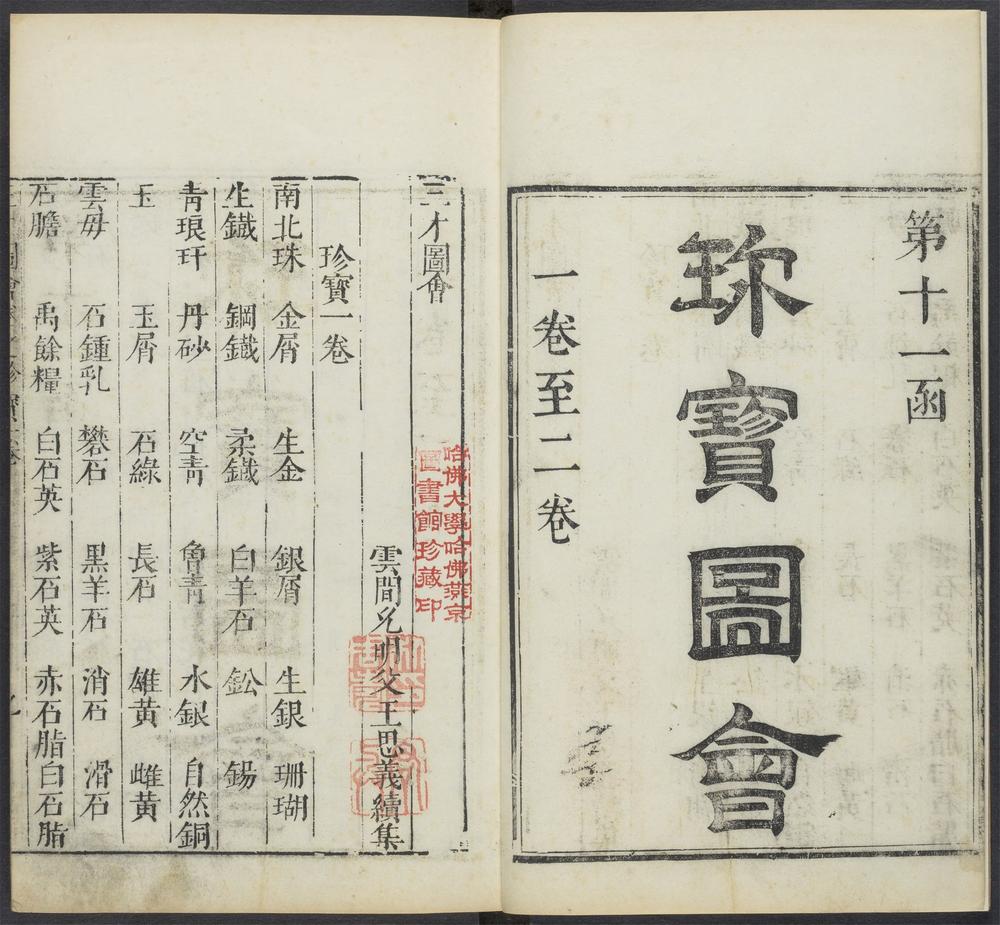 第十一函
珎寶圖會
一卷至二卷
三才圖會
哈佛大學哈佛燕京
圖書館珍藏印
雲間允明父王思義續集
珍寶一卷
南北珠 金屑 生金 銀屑 生銀 珊瑚
生鐵 鋼鐵 柔鐵 白羊石 鈆 錫
青琅玕 丹砂 空青 魯青 水銀 自然銅
玉 玉屑 石綠 長石 雄黃 雌黃
雲母 石鍾乳 礬石 黒羊石 消石 滑石
石膽 禹餘糧 白石英 紫石英 赤石脂 白石脂